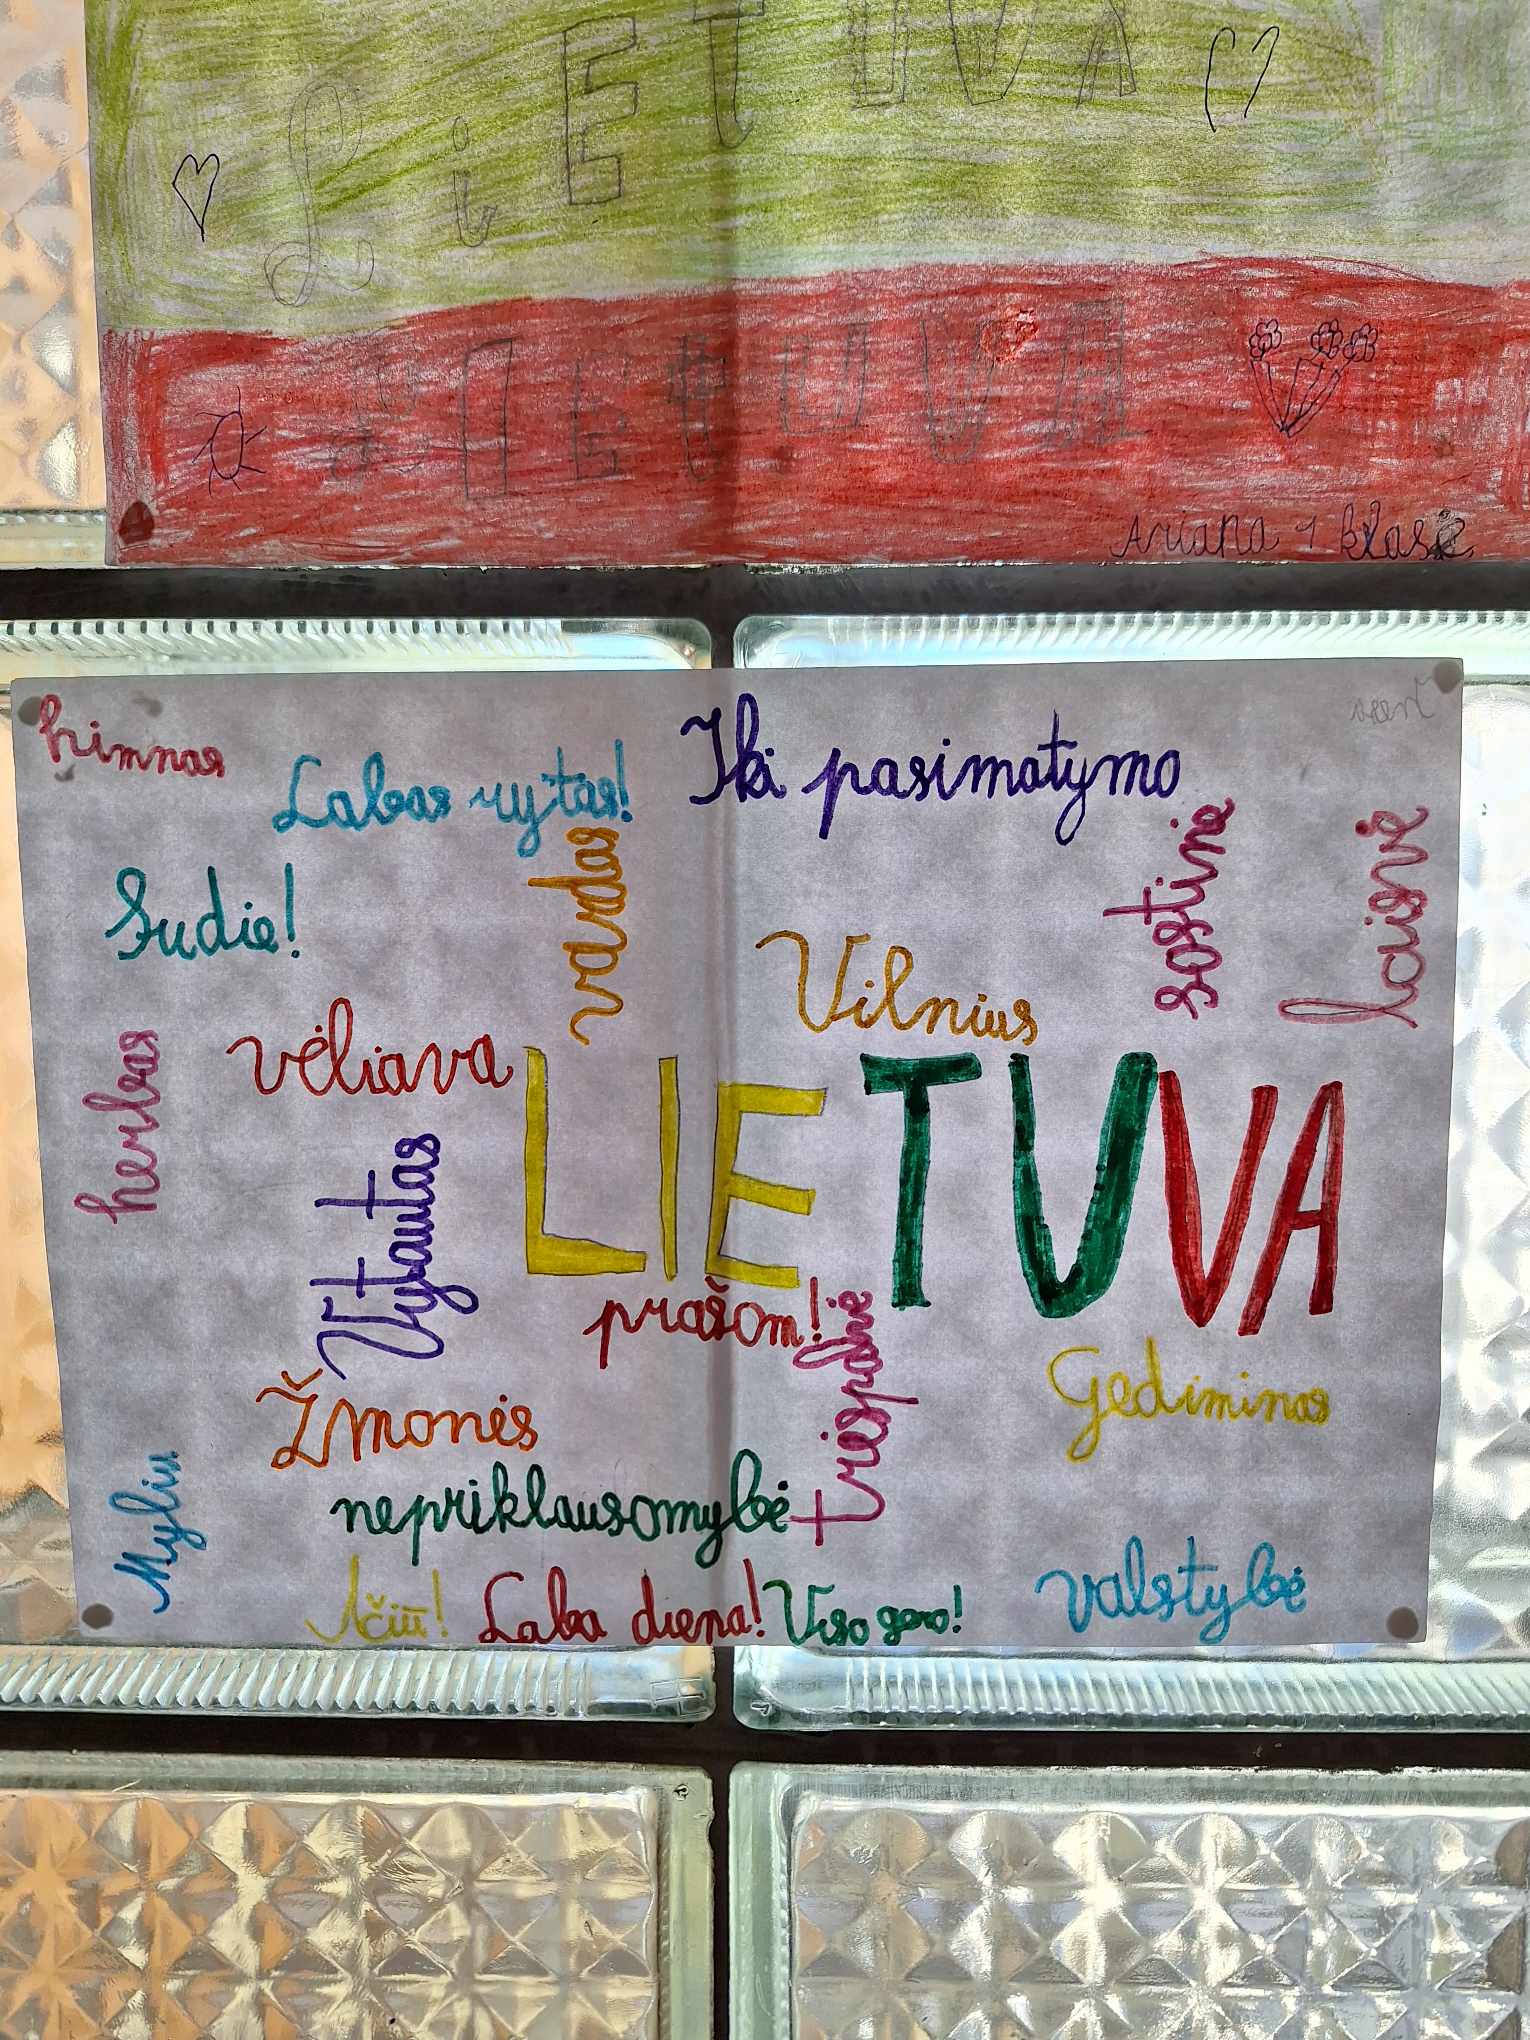 LiETUVA
LIETUVA
Ariana 1 klasė
himnas
Labas rytas!
Iki pasimatymo
vardas
sostinė
laisvė
Sudie!
Vilnius
herbas
vėliava
LIETUVA
Vytautas
prašom!
triespalvė
Gediminas
Žmonės
Myliu
nepriklausomybė
Ačiū!
Laba diena!
Viso gero!
valstybė